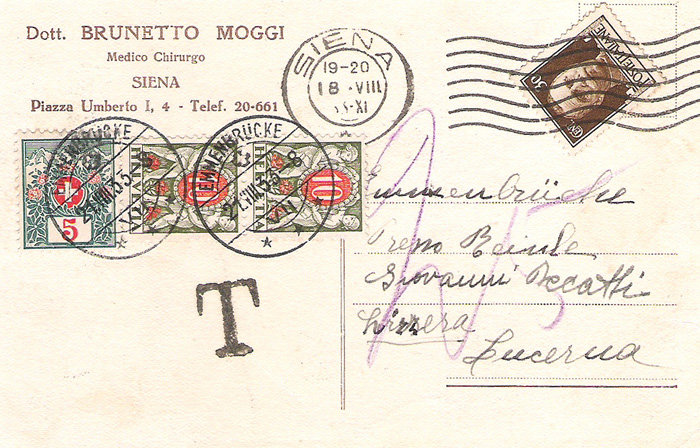 Dott. BRUNETTO MOGGI
Medico Chirurgo
SIENA
Piazza Umberto I, 4 - Telef. 20-661
SIENA
19-20
18 · VIII
33-XI
POSTE ITALIANE
30
EMMENBRÜCKE
EMMENBRÜCKE
5
HELVETIA
10
HELVETIA
10
T
Emmenbrücke
Giovanni
Svizzera
Lucerna